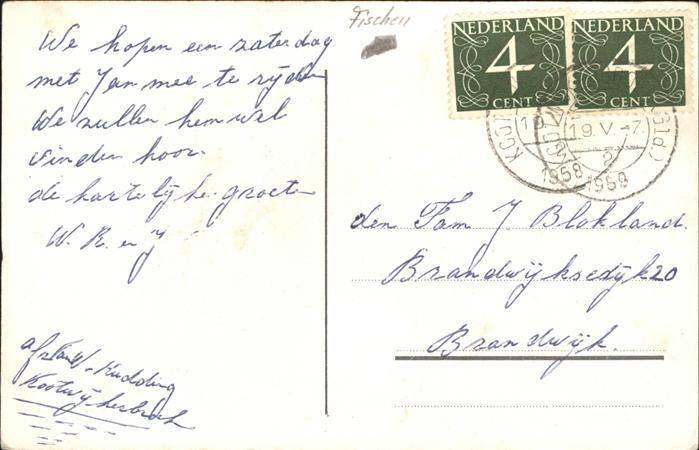 We hopen een zaterdag
met Jan mee te rijden
We zullen hem wel
vinden hoor.
de hartelijke groeten
W. R. en J
afz Fam W. Kudding
Kootwijkerbroek
Fischen
NEDERLAND
4
CENT
NEDERLAND
4
CENT
19. V. -7
2
1958
1958
den Fam J. Blokland.
Brandwijksedijk 20
Brandwijk.